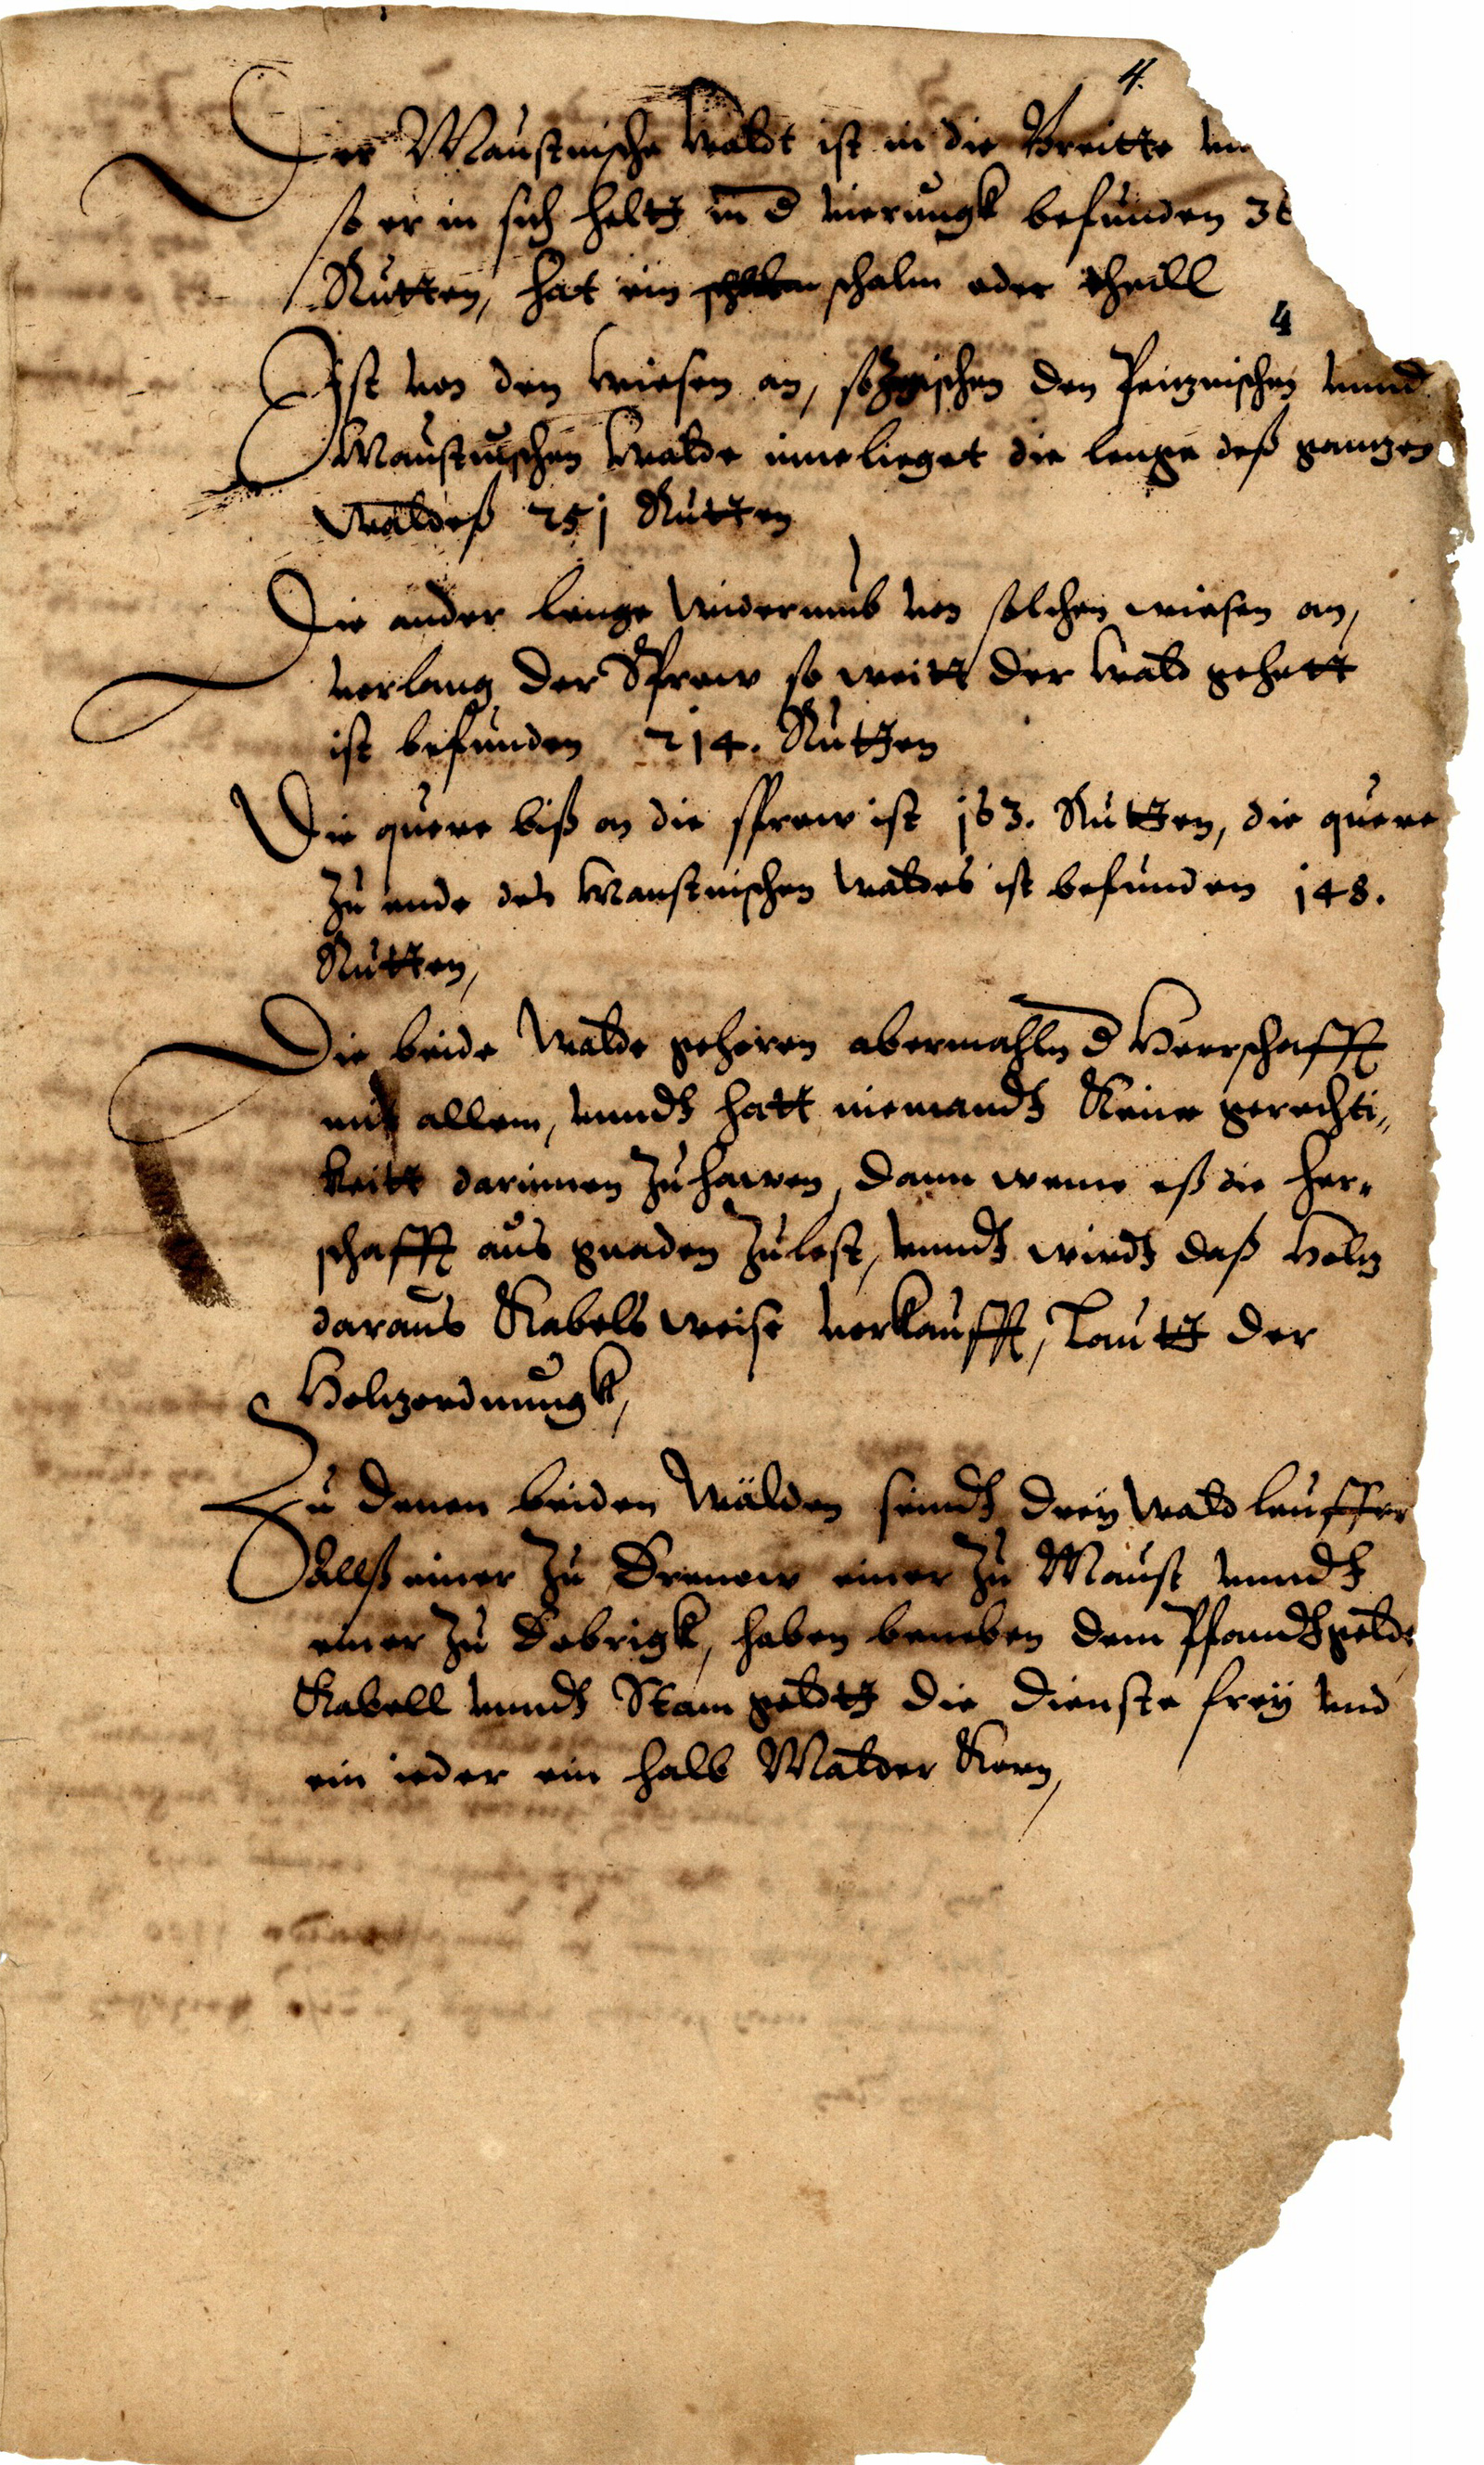 4.
Der Maustnische Waldt ist in die Breitte vn
so er in sich heltt in d vierungk befunden 36
Rutten, hat ein schalm oder theill
4
Ist von den Wiesen an, so zwischen den Peiznischen vnnd
Maustnischen Walde inne lieget die lenge deß gantzen
Waldeß 251 Rutten
Die ander lenge widerumb von solchen wiesen an,
verlang der Sprew so weitt der Wald gehett
ist befunden 214. Rutten
Die quere biß an die sprew ist 163. Rutten, die quere
zu ende des Maustnischen Waldes ist befunden 148.
Rutten,
Die beide Wälde gehören abermahln d Herrschafft
mit allem, vnndt hatt niemandt Keine gerechti„
keitt darinnen zu hawen, dann weme eß die her„
schafft aus gnaden zulest, vnndt wirdt daß Holtz
daraus Kabels weise verkaufft, Lautt der
Holtzordnungk,
Zu denen beiden Wälden seindt drey Wald leuffer
Allß einer zu Drenow einer zu Maust vnndt
einer zu Dobrigk, haben beneben dem Pfandtgelde
Kabell vnndt Stam geldtt die dienste frey vnd
ein ieder ein halb Malder Korn,